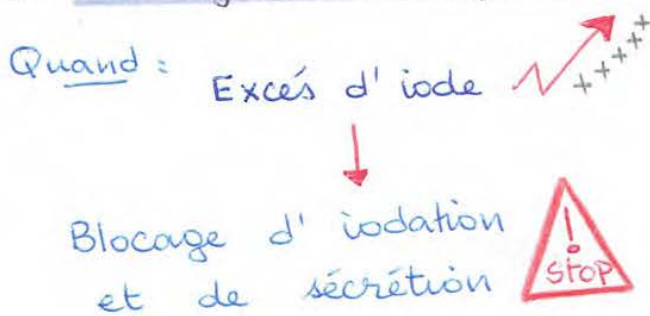 Quand : Excés d'iode +++++
Blocage d'iodation
et de sécrétion
! STOP